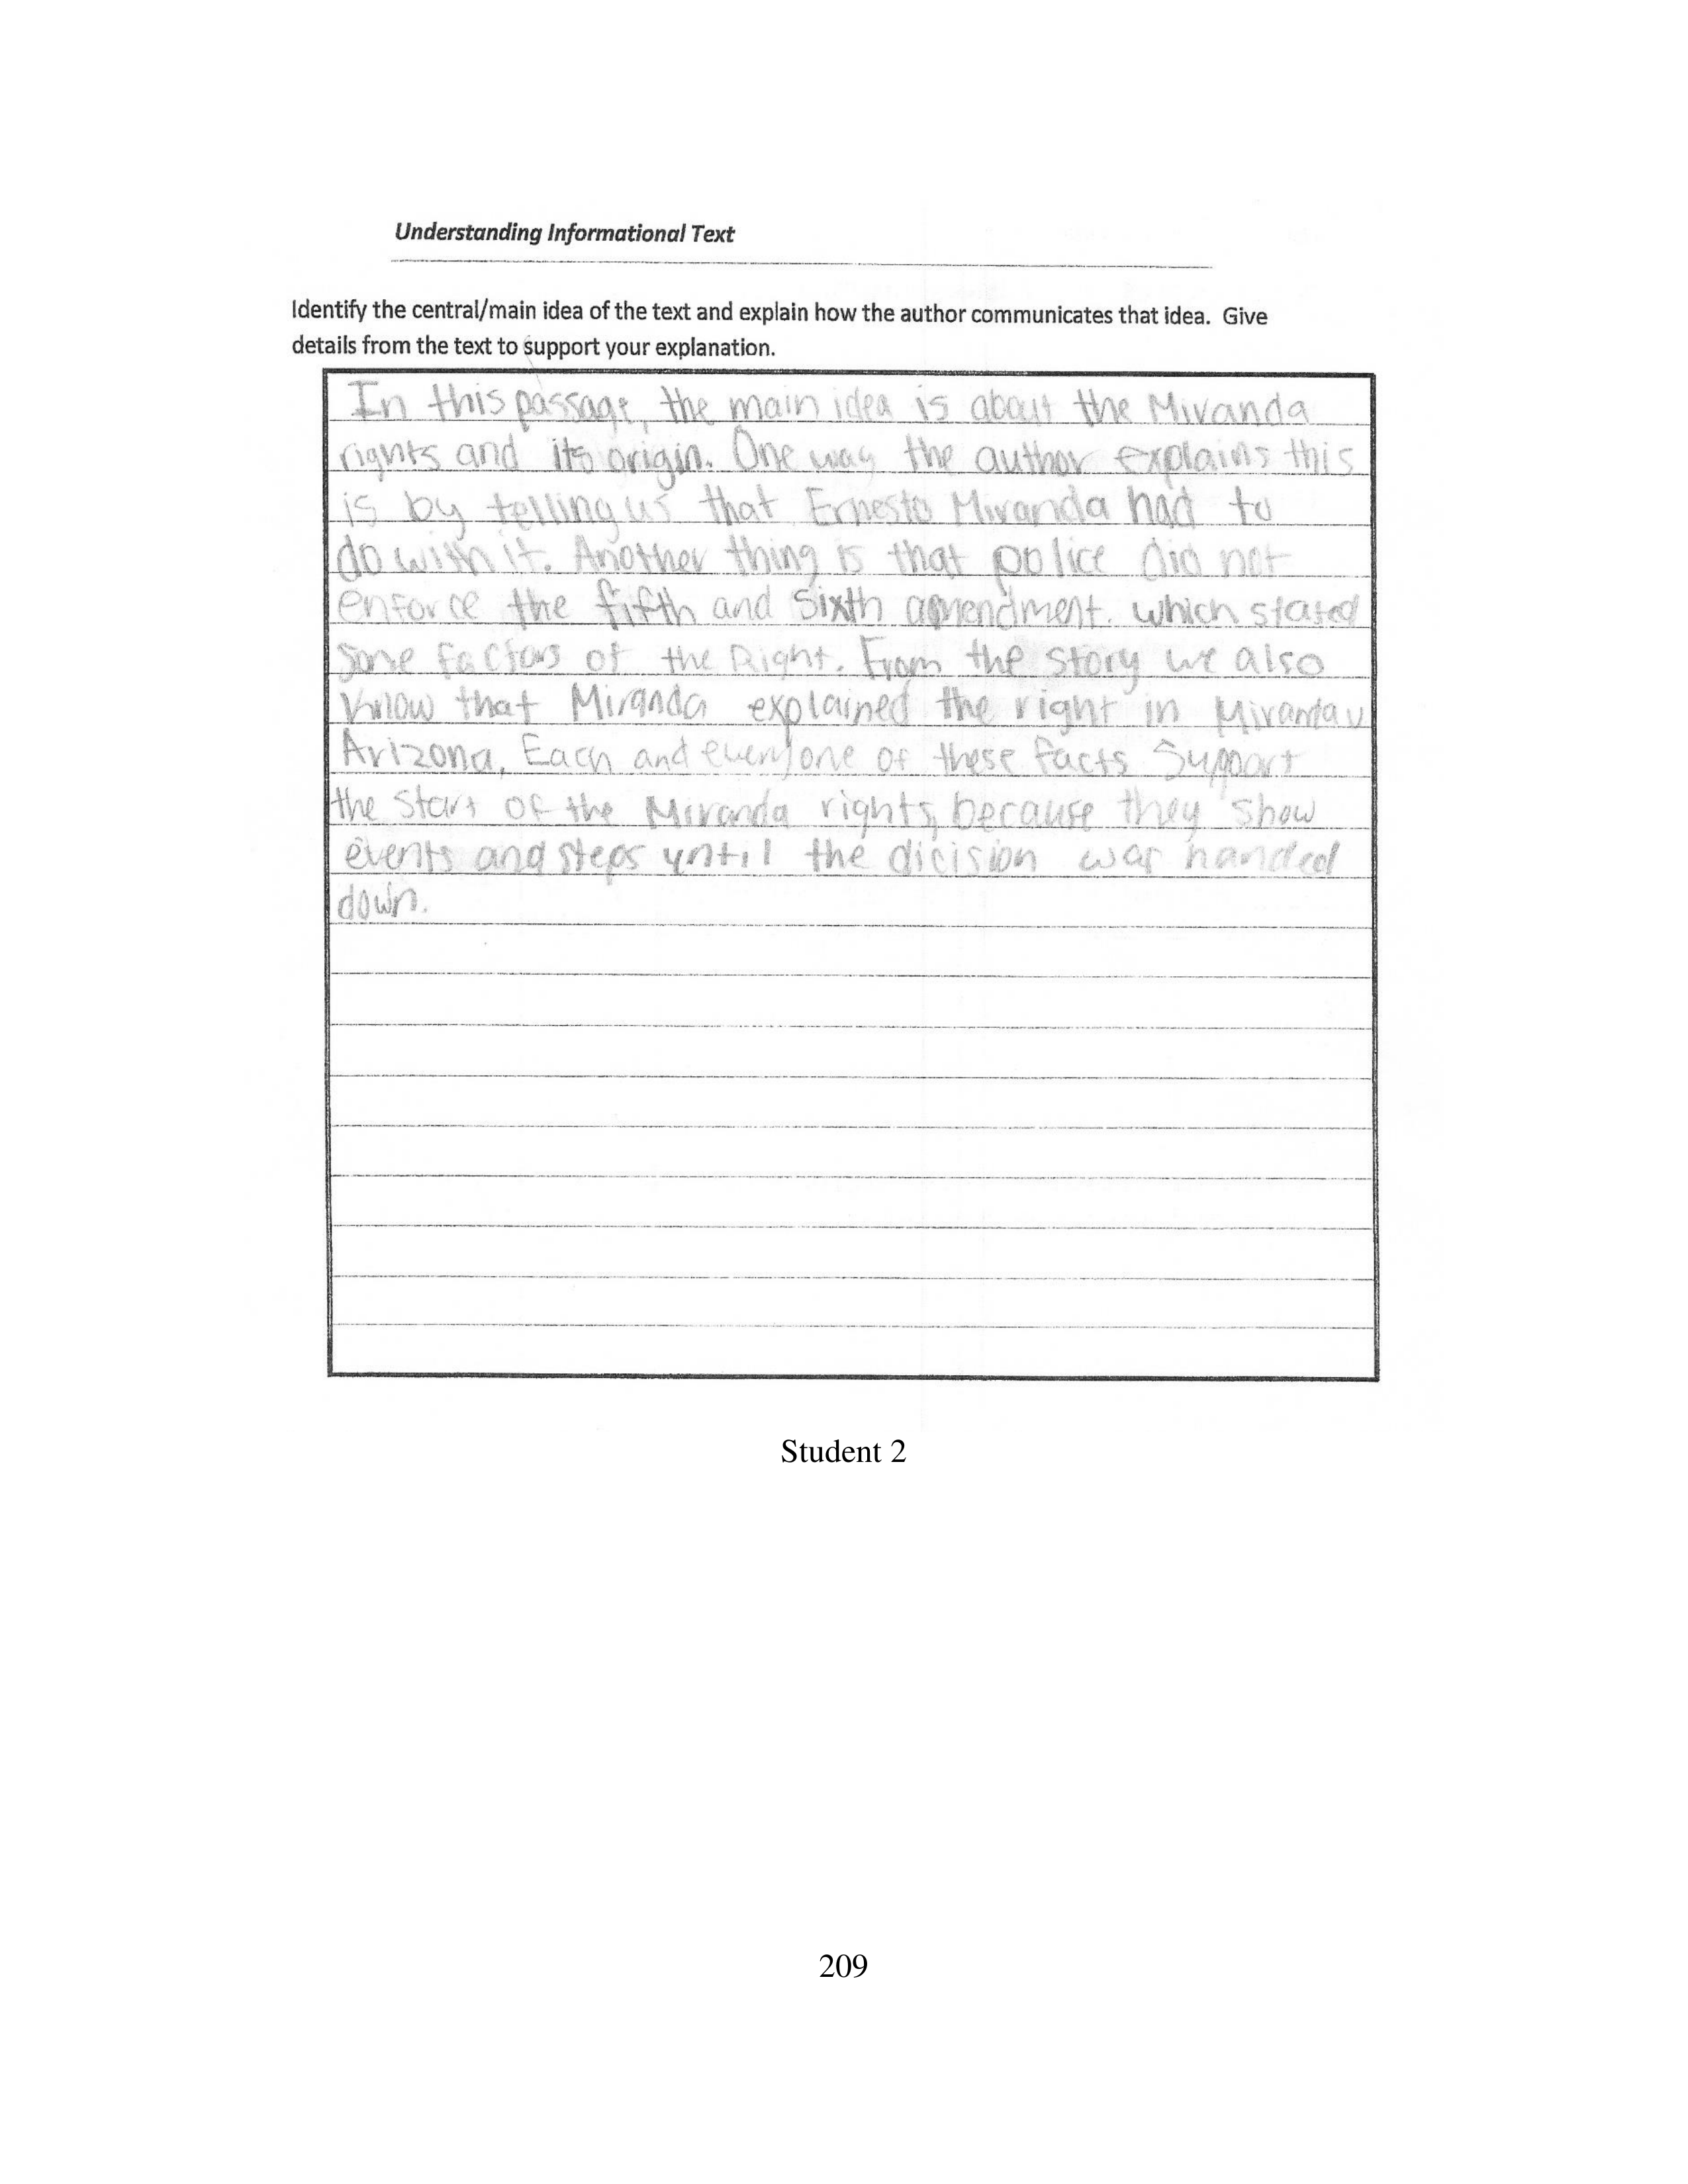 Understanding Informational Text
Identify the central/main idea of the text and explain how the author communicates that idea. Give
details from the text to support your explanation.
In this passage, the main idea is about the Miranda
rights and its origin. One way the author explains this
is by telling us that Ernesto Miranda had to
do with it. Another thing is that police did not
enforce the fifth and sixth amendment. which stated
some factors of the Right. From the story we also
know that Miranda explained the right in Miranda v
Arizona. Each and every one of these facts support
the start of the Miranda rights, because they show
events and steps until the dicision was handed
down.
Student 2
209